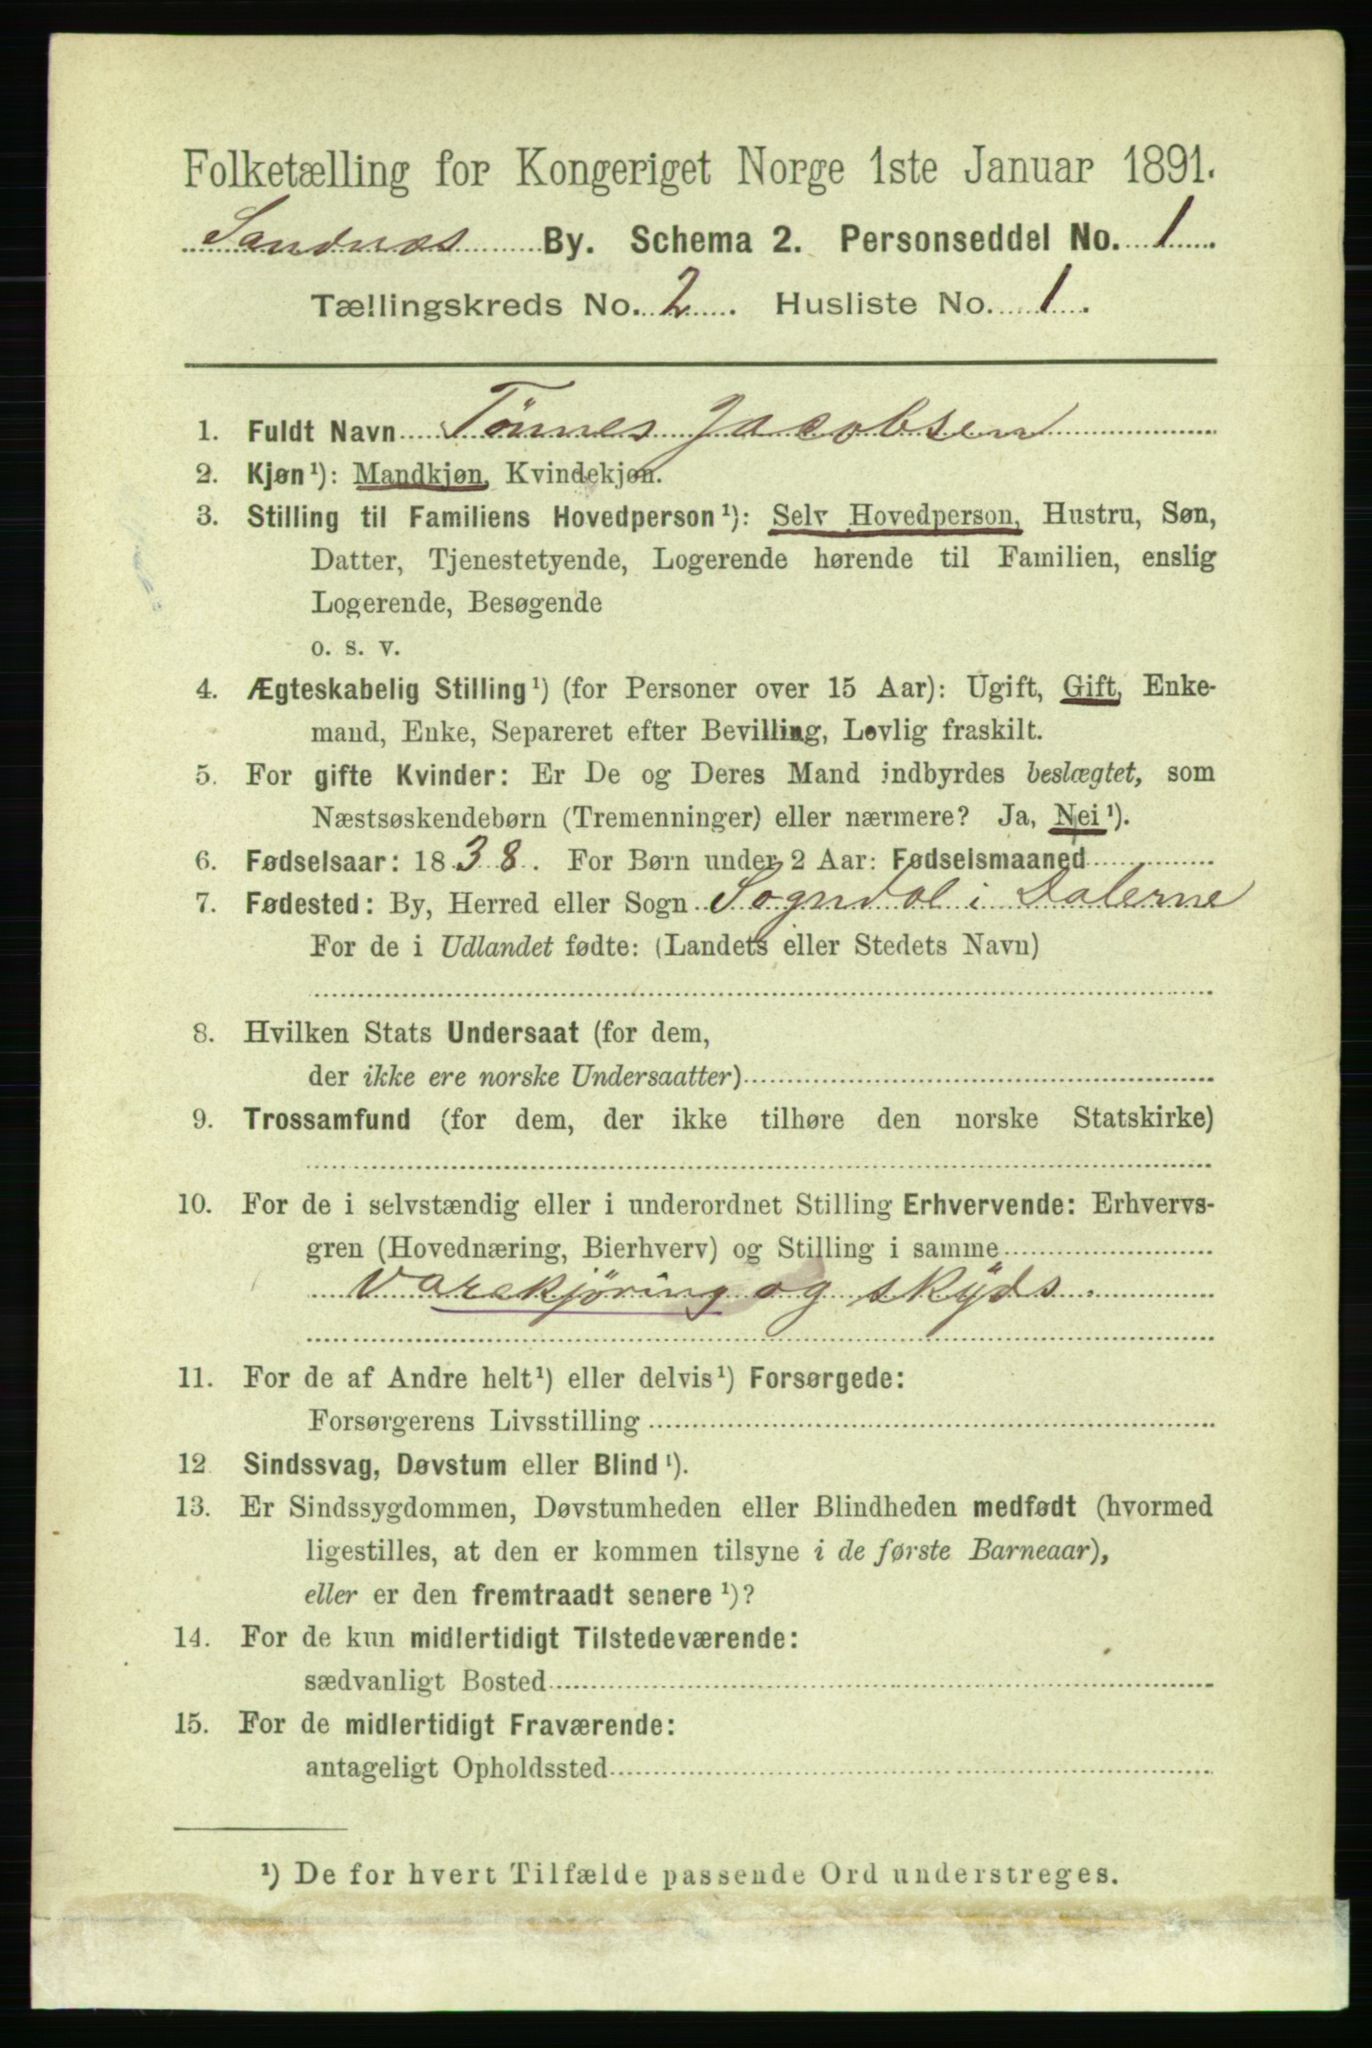 Folketælling for Kongeriget Norge 1ste Januar 1891.
Sandnæs By. Schema 2. Personseddel No. 1
Tællingskreds No. 2. Husliste No. 1.
1. Fuldt Navn Tönnes Jacobsen
2. Kjøn¹): Mandkjøn, Kvindekjøn.
3. Stilling til Familiens Hovedperson¹): Selv Hovedperson, Hustru, Søn,
Datter, Tjenestetyende, Logerende hørende til Familien, enslig
Logerende, Besøgende
o. s. v.
4. Ægteskabelig Stilling¹) (for Personer over 15 Aar): Ugift, Gift, Enke-
mand, Enke, Separeret efter Bevilling, Lovlig fraskilt.
5. For gifte Kvinder: Er De og Deres Mand indbyrdes beslægtet, som
Næstsøskendebørn (Tremenninger) eller nærmere? Ja, Nei¹).
6. Fødselsaar: 1838. For Børn under 2 Aar: Fødselsmaaned
7. Fødested: By, Herred eller Sogn Sogndal i Dalerne
For de i Udlandet fødte: (Landets eller Stedets Navn)
8. Hvilken Stats Undersaat (for dem,
der ikke ere norske Undersaatter)
9. Trossamfund (for dem, der ikke tilhøre den norske Statskirke)
10. For de i selvstændig eller i underordnet Stilling Erhvervende: Erhvervs-
gren (Hovednæring, Bierhverv) og Stilling i samme
Varekjöring og skyds.
11. For de af Andre helt¹) eller delvis¹) Forsørgede:
Forsørgerens Livsstilling
12 Sindssvag, Døvstum eller Blind¹).
13. Er Sindssygdommen, Døvstumheden eller Blindheden medfødt (hvormed
ligestilles, at den er kommen tilsyne i de første Barneaar),
eller er den fremtraadt senere¹)?
14. For de kun midlertidigt Tilstedeværende:
sædvanligt Bosted
15. For de midlertidigt Fraværende:
antageligt Opholdssted
¹) De for hvert Tilfælde passende Ord understreges.